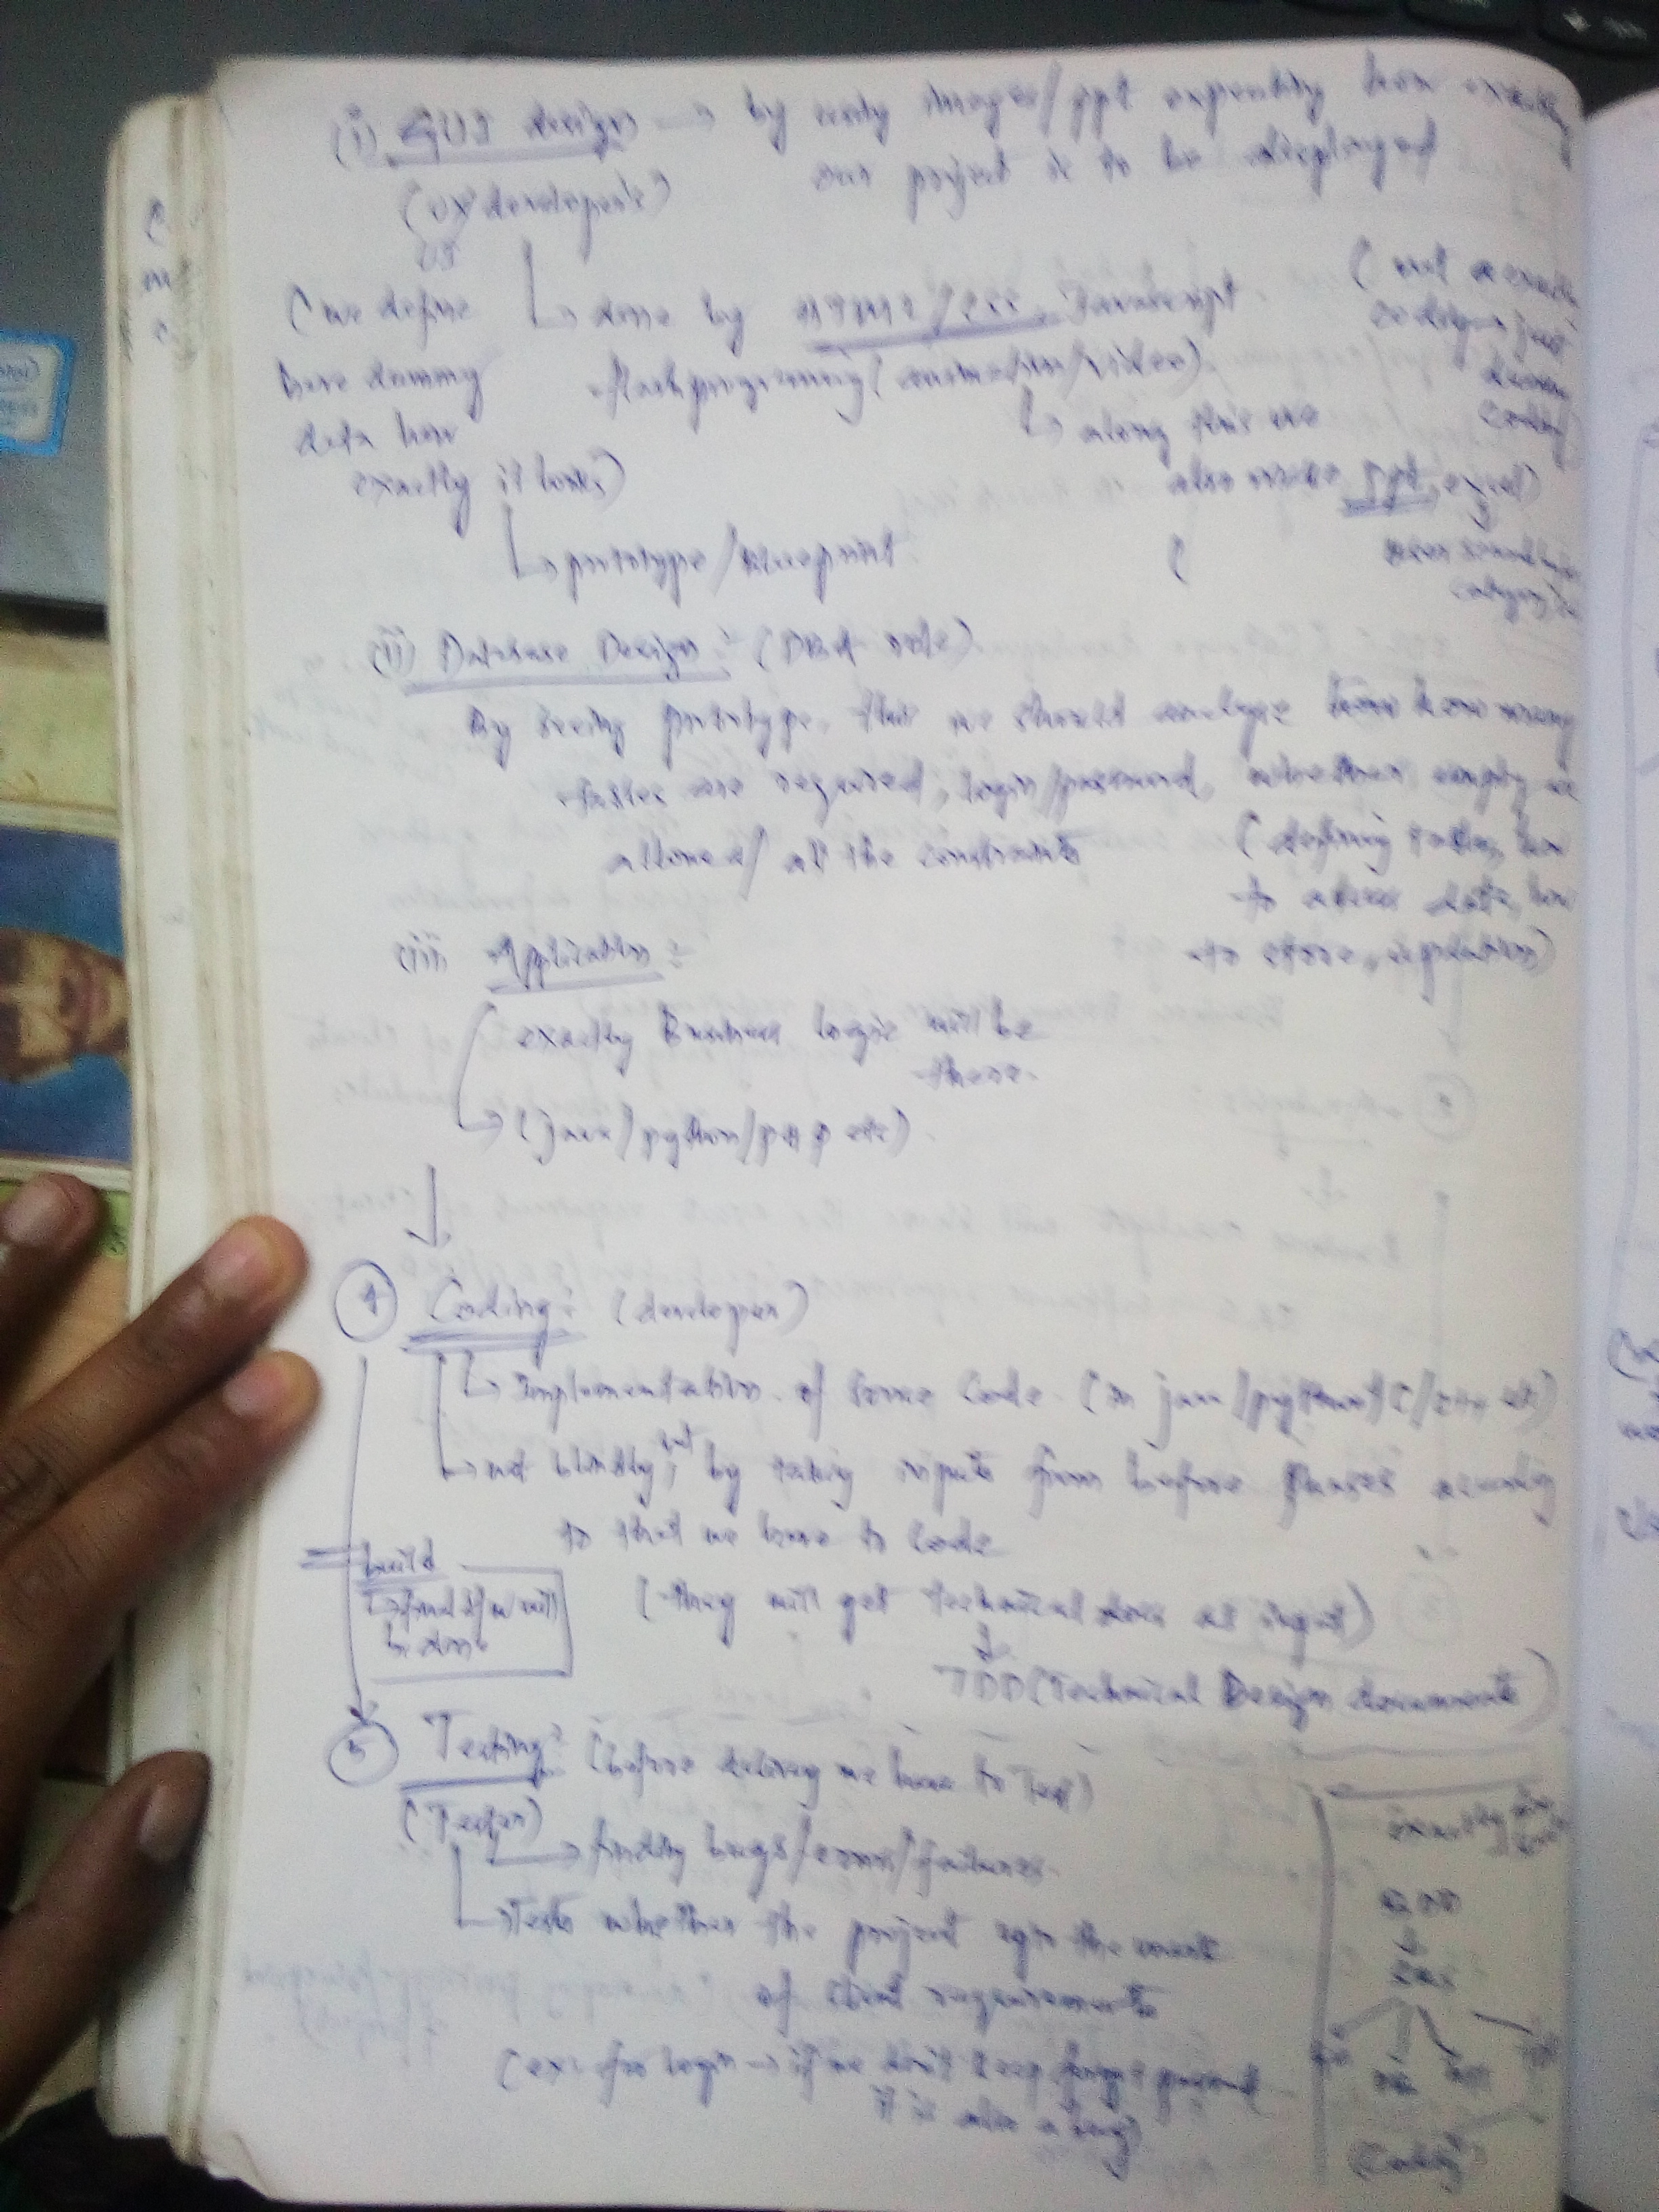 (i) GUI design → by images/ppt how exactly
our project is to be displayed
(UX developers)
UI
(we define
here dummy
data how
exactly it looks)
→ done by HTML/CSS, Javascript
flash programming (animation/video)
→ along this we
also make ppt, excel)
(not exactly
coding just
design
coding
→ prototype/blueprint
(
(ii) Database Design :- (DBA role)
By seeing prototype, this we should analyze how many
tables are required, login/password, whether empty is
allowed/ all the constraints
(defining tables, how
to access data, how
to store, )
(iii) Application :-
exactly Business logic will be
there.
→ (java/python/php etc).
4 Coding: (developer)
→ Implementation of source code (in java/python/C/C++ etc)
→ not blindly, but by taking inputs from before phases according
to that we have to code
build
→ final s/w will
be done
(they will get technical docs as input)
TDD (Technical Design documents)
5 Testing: (before delivery we have to Test)
(Tester)
→ finding bugs/errors/failures.
→ Tests whether the project the
of client requirements
(ex: for login → if we don't keep forgot password
it is also a bug)
exactly
(Coding)